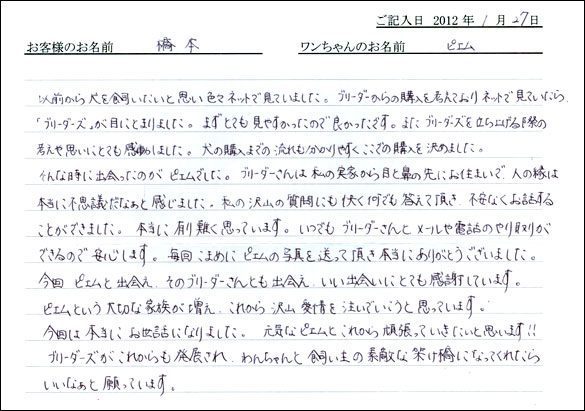 ご記入日 2012 年 1 月 27 日
お客様のお名前 橋本 ワンちゃんのお名前 ピエム
以前から犬を飼いたいと思い色々ネットで見ていました。ブリーダーからの購入を考えておりネットで見ていたら
「ブリーダーズ」が目にとまりました。まずとても見やすかったので良かったです。またブリーダーズを立ち上げる際の
考えや思いにとても感動しました。犬の購入までの流れも分かりやすくここでの購入を決めました。
そんな時に出会ったのがピエムでした。ブリーダーさんは私の実家から目と鼻の先にお住まいで人の縁は
本当に不思議だなぁと感じました。私の沢山の質問にも快く何でも答えて頂き、不安なくお話する
ことができました。本当に有り難く思っています。いつでもブリーダーさんとメールや電話のやり取りが
できるので安心します。毎回こまめにピエムの写真を送って頂き本当にありがとうございました。
今回ピエムと出会え、そのブリーダーさんとも出会え、いい出会いにとても感謝しています。
ピエムという大切な家族が増え、これから沢山愛情を注いでいこうと思っています。
今回は本当にお世話になりました。元気なピエムとこれから頑張っていきたいと思います!!
ブリーダーズがこれからも発展され、わんちゃんと飼い主の素敵な架け橋になってくれたら
いいなぁと願っています。